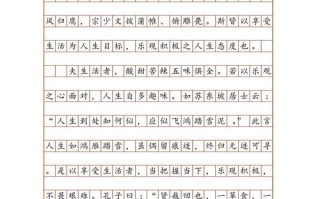 风归鹰，宗少文拔蒲帷、俯雕甍。斯皆以享受
生活为人生目标，乐观积极之人生态度也。
夫生活者，酸甜苦辣五味俱全。若以乐观
之心面对，人生自多趣味。如苏东坡居士云：
“人生到处如何似，应似飞鸿踏雪泥。”此言
人生如鸿雁踏雪，虽偶留痕迹，终归无迹可寻
。是以享受生活者，当把握当下，乐观积极，
不畏艰难。孔子曰：“贤哉回也，一箪食，一